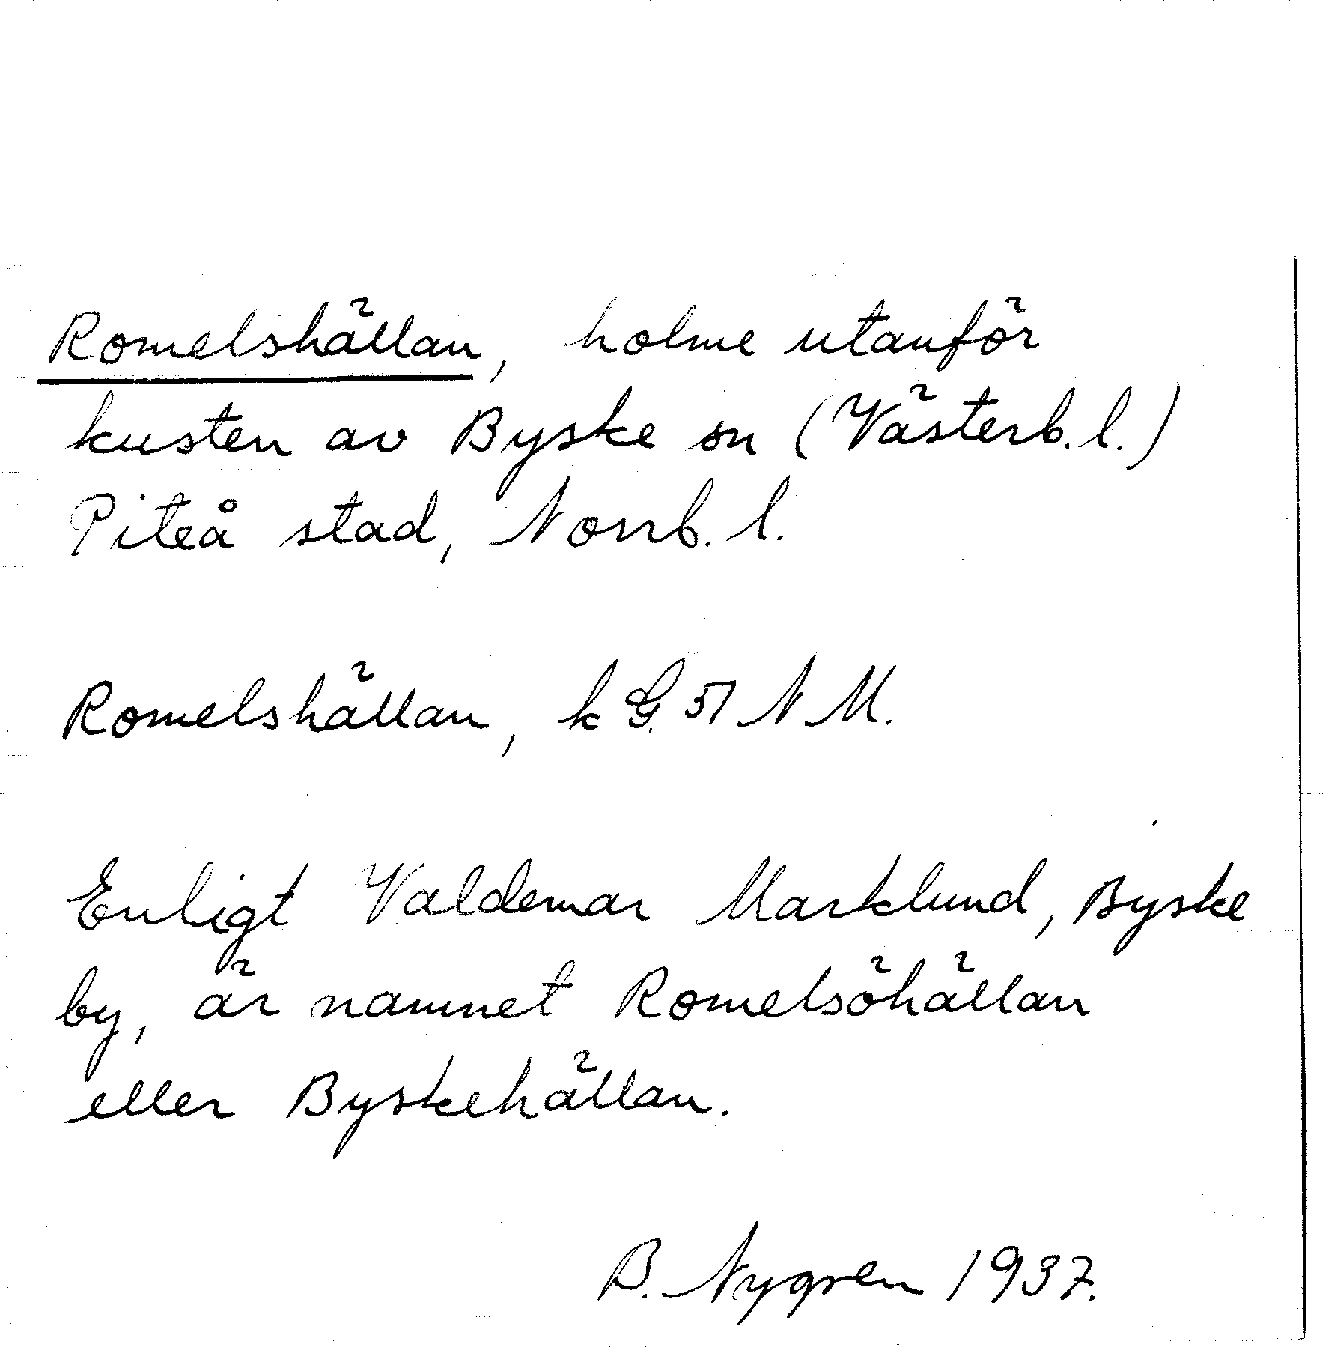 Romelshällan, holme utanför
kusten av Byske sn (Västerb. l.)
Piteå stad, Norrb. l.
Romelshällan, k G. 51 N M.
Enligt Valdemar Marklund, Byske
by, är namnet Romelsöhällan
eller Byskehällan.
B. Nygren 1937.